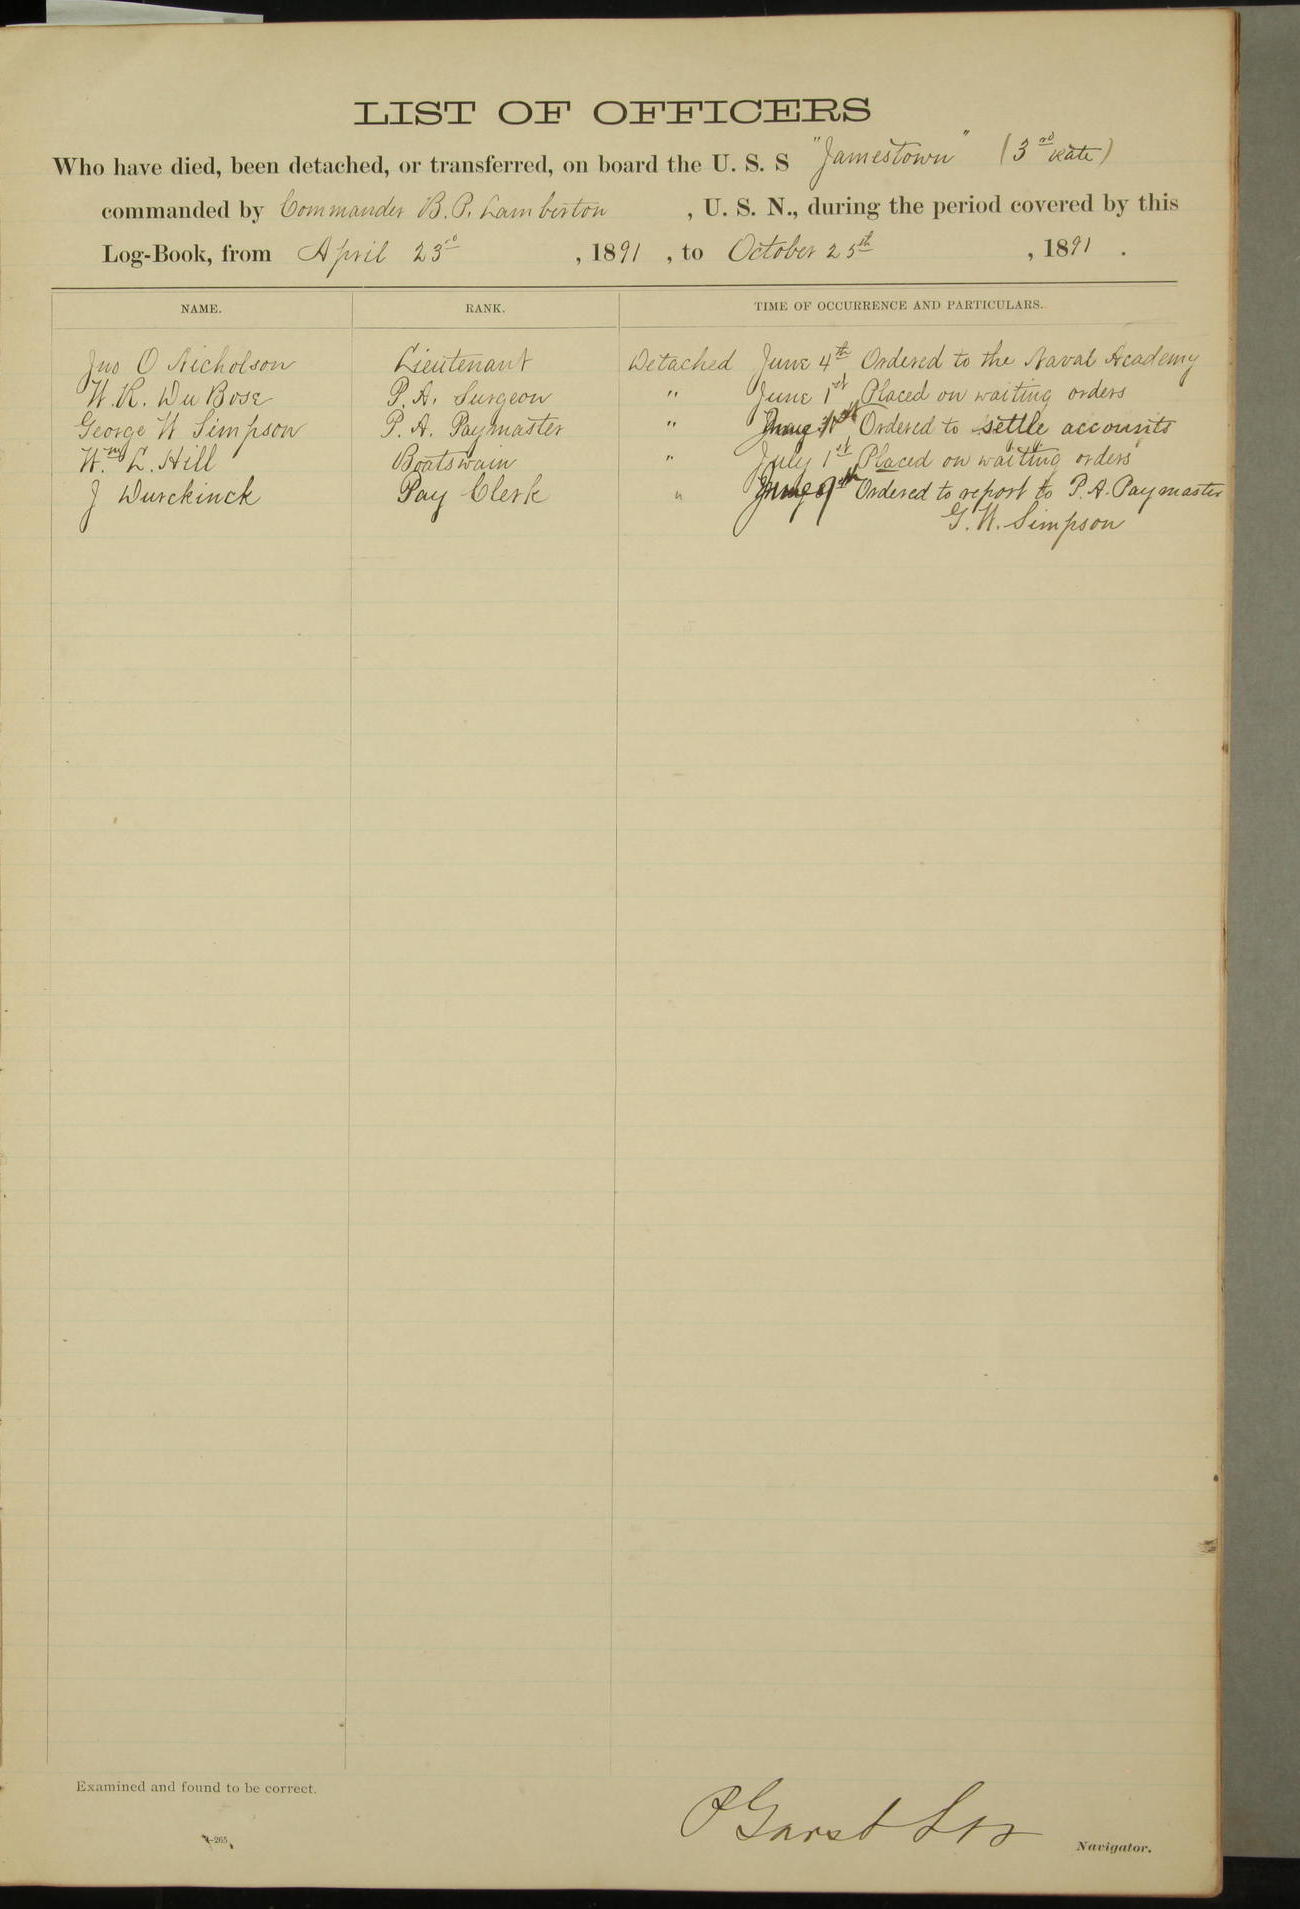 LIST OF OFFICERS
Who have died, been detached, or transferred, on board the U. S. S "Jamestown" (3rd Rate)
commanded by Commander B. P. Lamberton , U. S. N., during the period covered by this
Log-Book, from April 23rd , 1891 , to October 25th , 1891 .
NAME. RANK. TIME OF OCCURRENCE AND PARTICULARS.
Jno O Nicholson Lieutenant Detached June 4th Ordered to the Naval Academy
W. R. Du Bose P. A. Surgeon " June 1st Placed on waiting orders
George W Simpson P. A. Paymaster " Ordered to settle accounts
Wm. L. Hill Boatswain " July 1st Placed on waiting orders
J Durckinck Pay Clerk " Ordered to report to P. A. Paymaster
G. W. Simpson
Examined and found to be correct.
P Garst
Navigator.